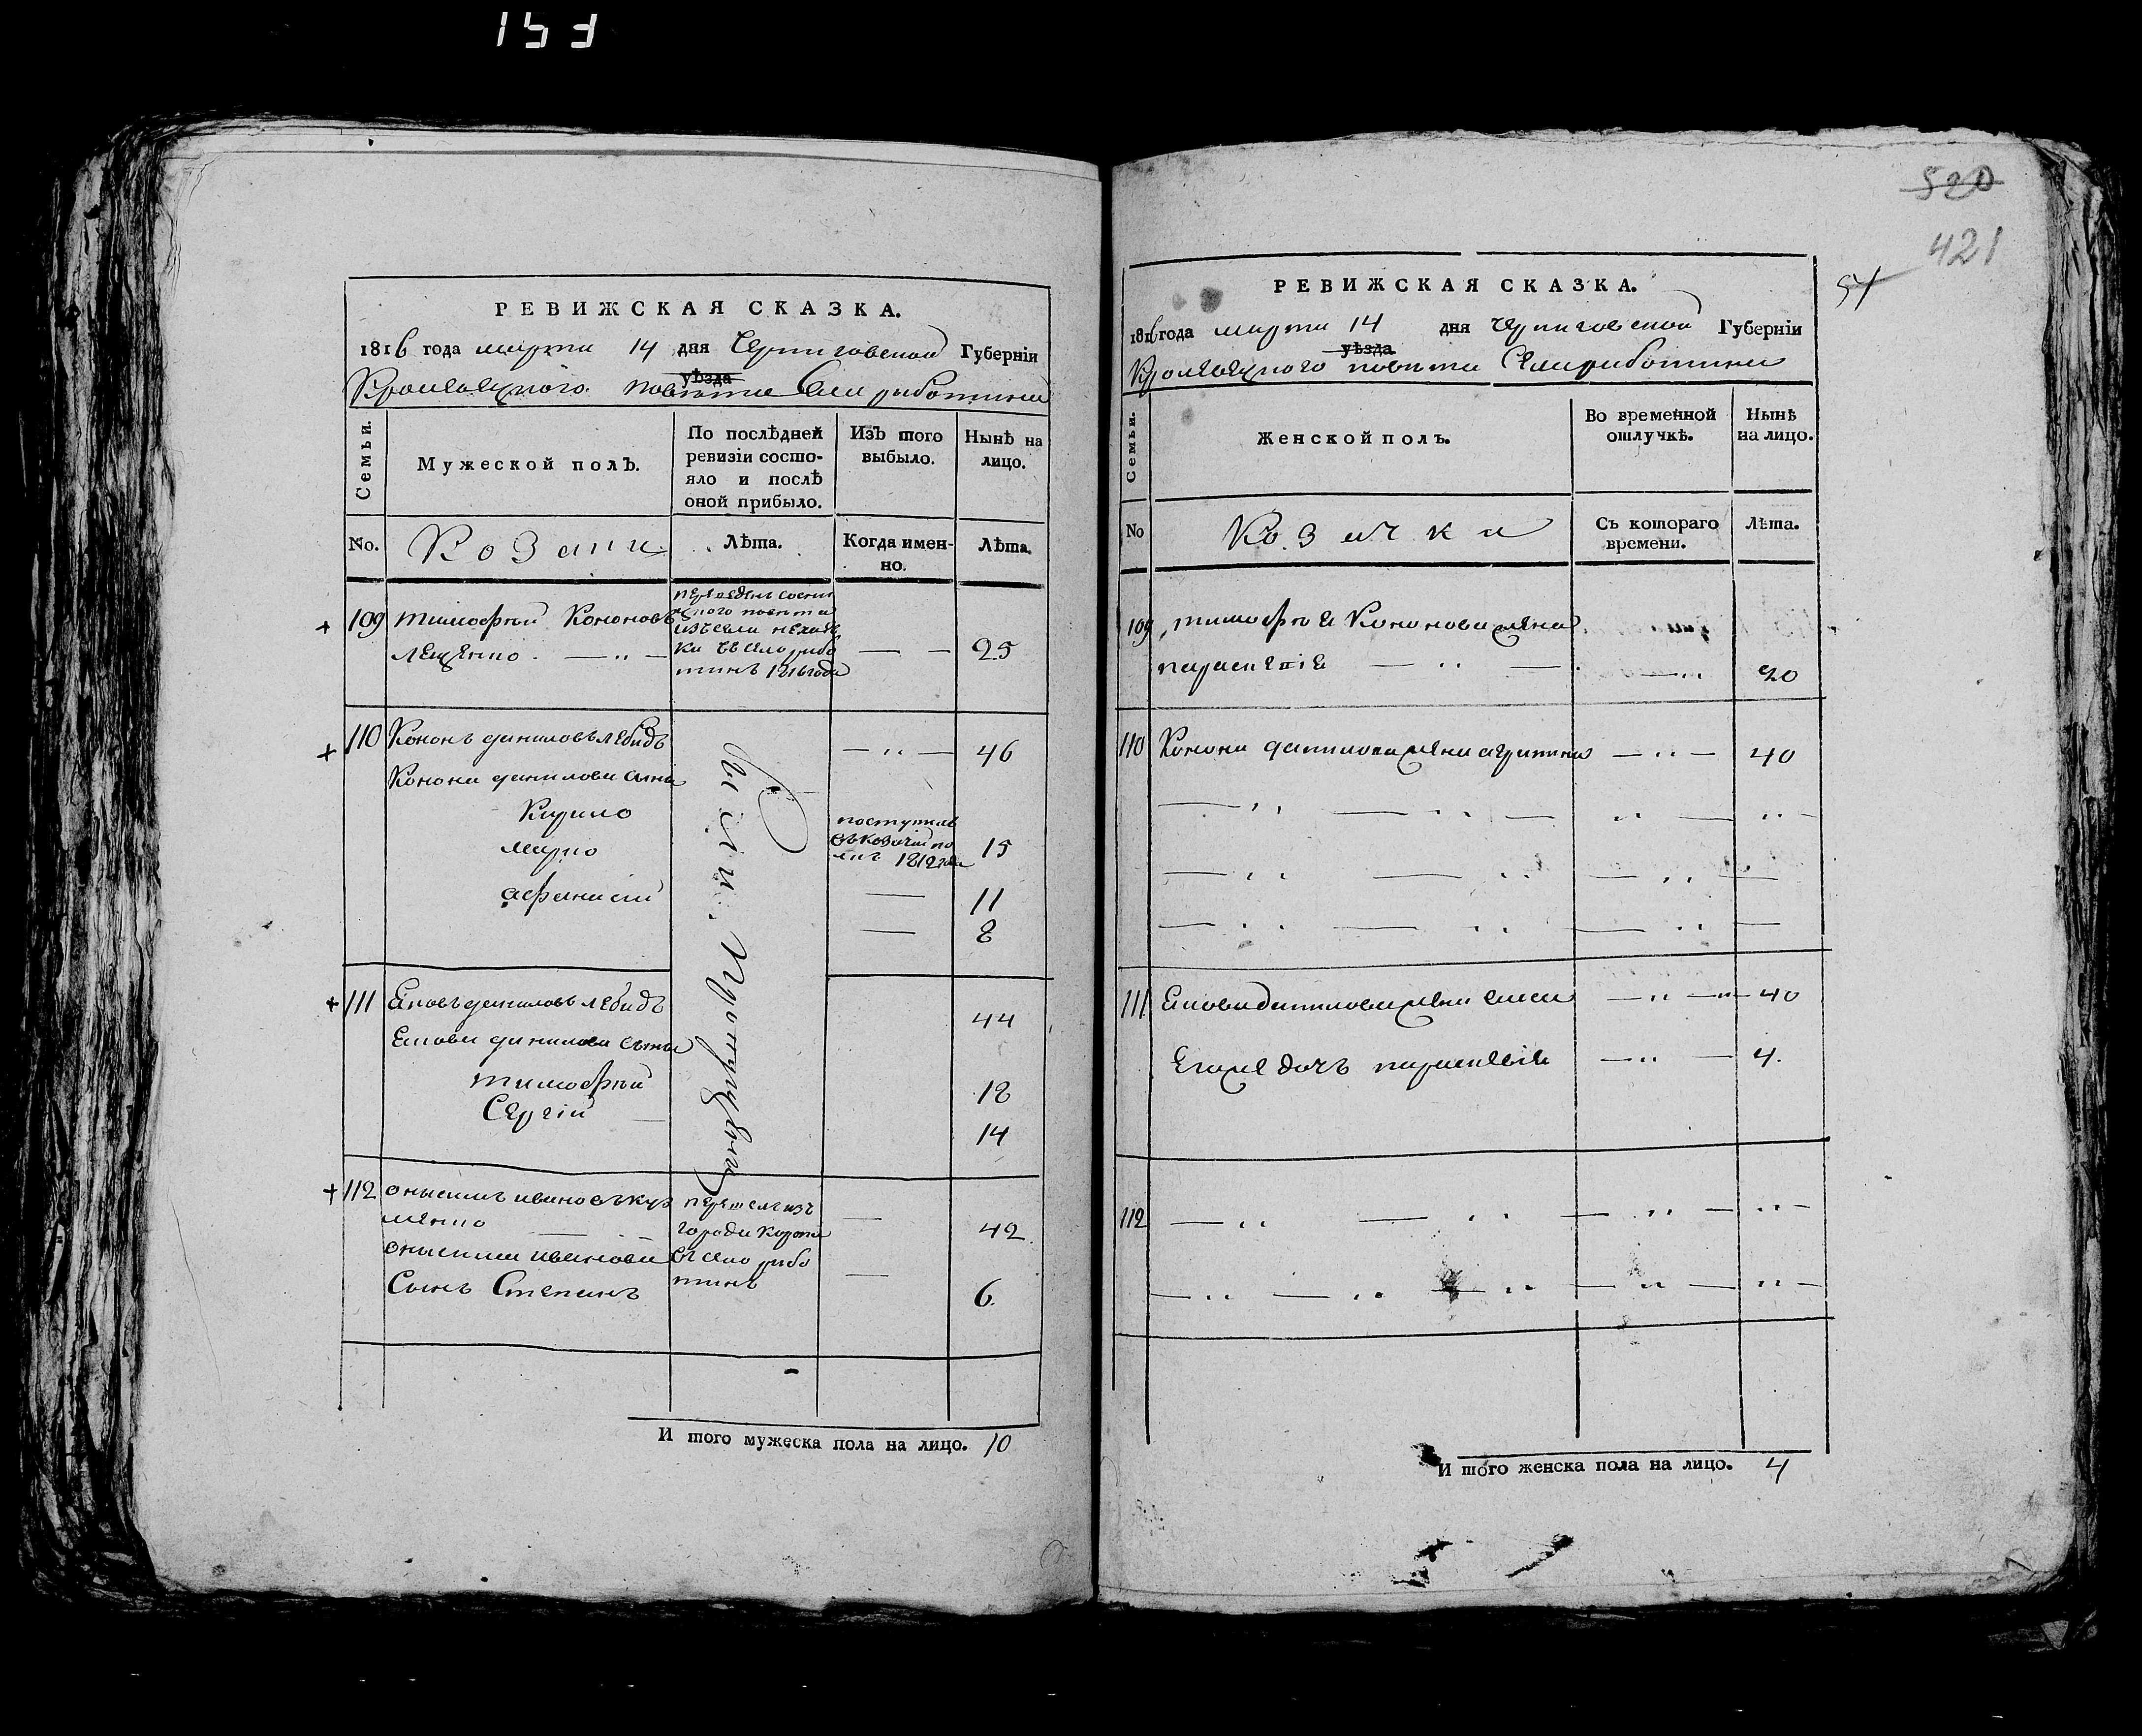 153
РЕВИЖСКАЯ СКАЗКА.
1816 года марта 14 дня Черниговской Губерніи
уѣзда
Кролевецкого повѣта Села риботина
Семьи.
Мужеской полъ.
По послѣдней ревизіи состо-
яло и послѣ
оной прибыло.
Изъ того
выбыло.
Нынѣ на
лицо.
No.
Козаки
Лѣта.
Когда имен-
но.
Лѣта.
109 тимофѣй Кононовъ
лещенко
ного повѣта
изъ села
въ село рибо
тинъ 1816 года
25
110 Кононъ даниловъ лебидь
46
Конона данилова сына
Кирило
поступилъ
въ козачій по
лкъ 1812 года
15
марко
афанасій
11
8
были Пропущены
111 Яковъ даниловъ лебидь
44
Якова данилова сыны
тимофѣй
18
Сергій
14
112 онысимъ ивановъ куз
менко
42
онысима иванова
Сынъ Степанъ
6.
перешелъ изъ
города Коропа
въ село рибо
тинъ
И того мужеска пола на лицо. 10
520
421
54
РЕВИЖСКАЯ СКАЗКА.
1816 года марта 14 дня Черниговской Губерніи
уѣзда
Кролевецкого повѣта Села риботина
Семьи.
Женской полъ.
Во временной
отлучкѣ.
Нынѣ
на лицо.
No
Козачки
Съ котораго
времени.
Лѣта.
109 тимофѣя Кононова жена
параскевія
20
110 Конона данилова жена агрипина
40
111 Якова данилова жена
40
Егоже дочь параскевія
4.
112
И того женска пола на лицо. 4